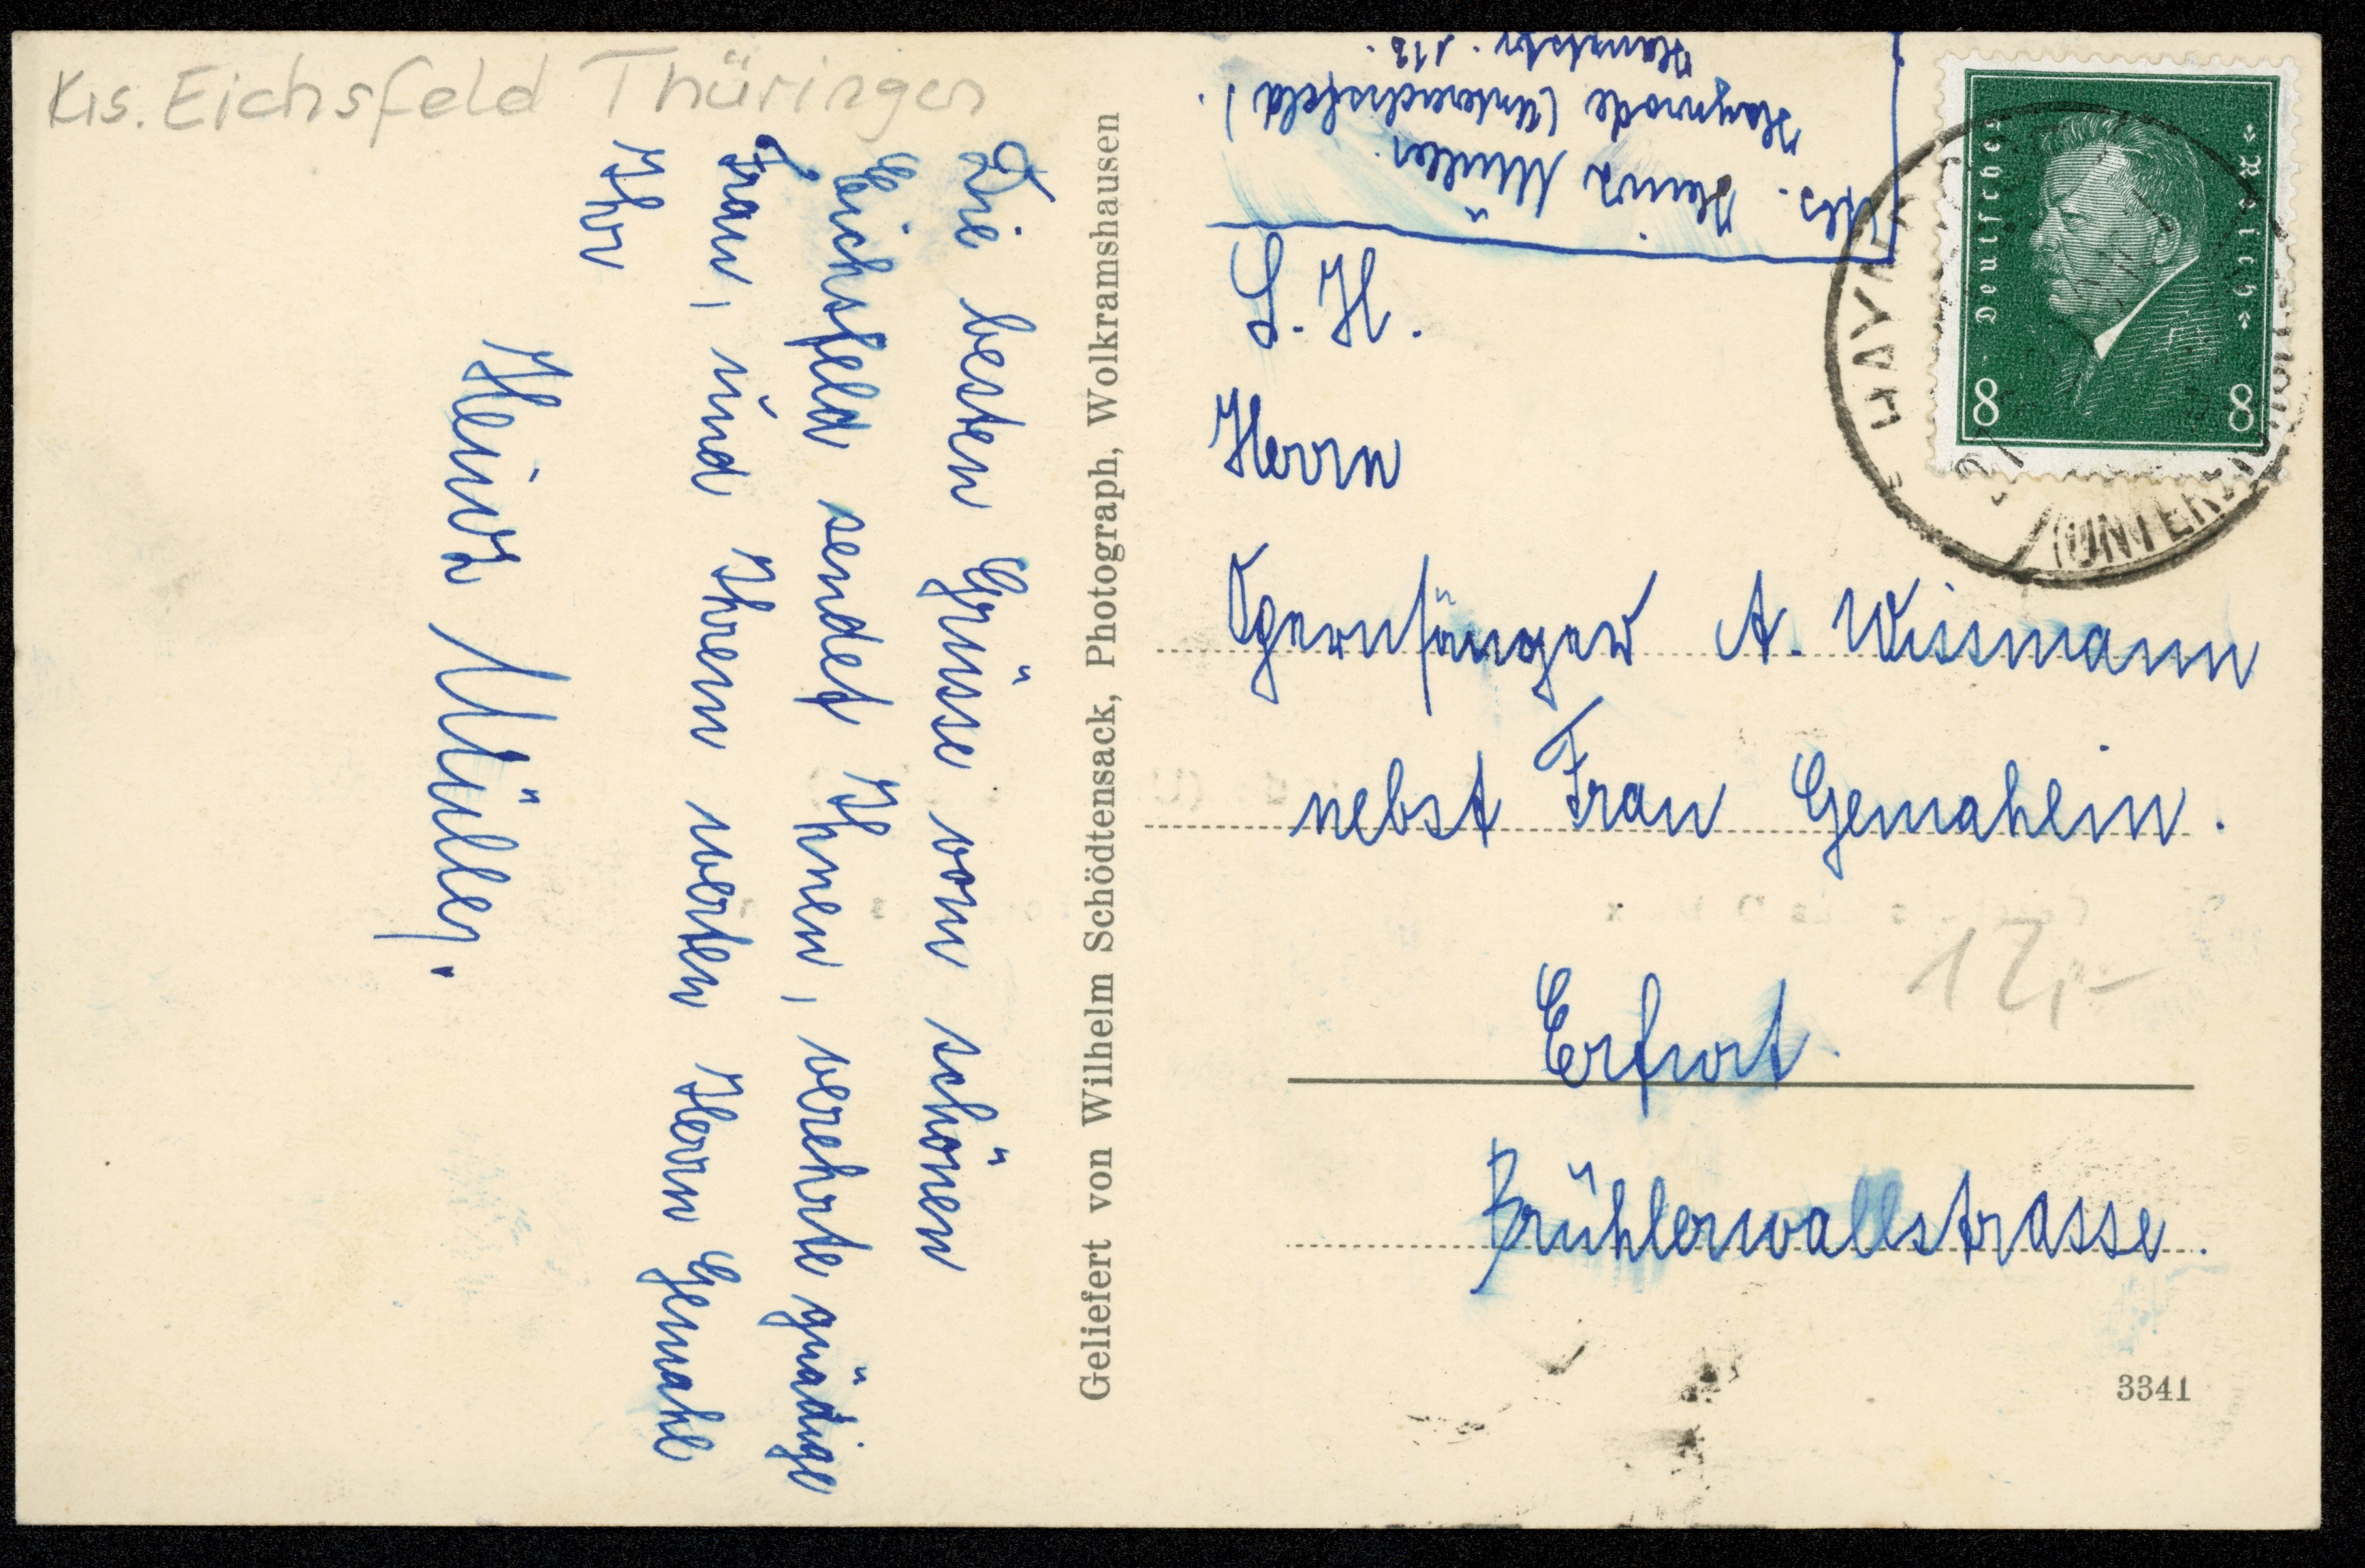 Krs. Eichsfeld Thüringen
Die besten Grüsse vom schönen
Eichsfeld sendet Ihnen, verehrte gnädige
Frau, und Ihrem werten Herrn Gemahl
Ihr
Heinz Müller.
Geliefert von Wilhelm Schödtensack, Photograph, Wolkramshausen
Abs. Heinz Müller.
Haynrode (Untereichsfeld).
Hauptstr. 112.
Deutsches Reich
8 8
HAYNR
(UNTER
S. H.
Herrn
Opernsänger A. Wissmann
nebst Frau Gemahlin.
12,-
Erfurt.
Brühlerwallstrasse.
3341